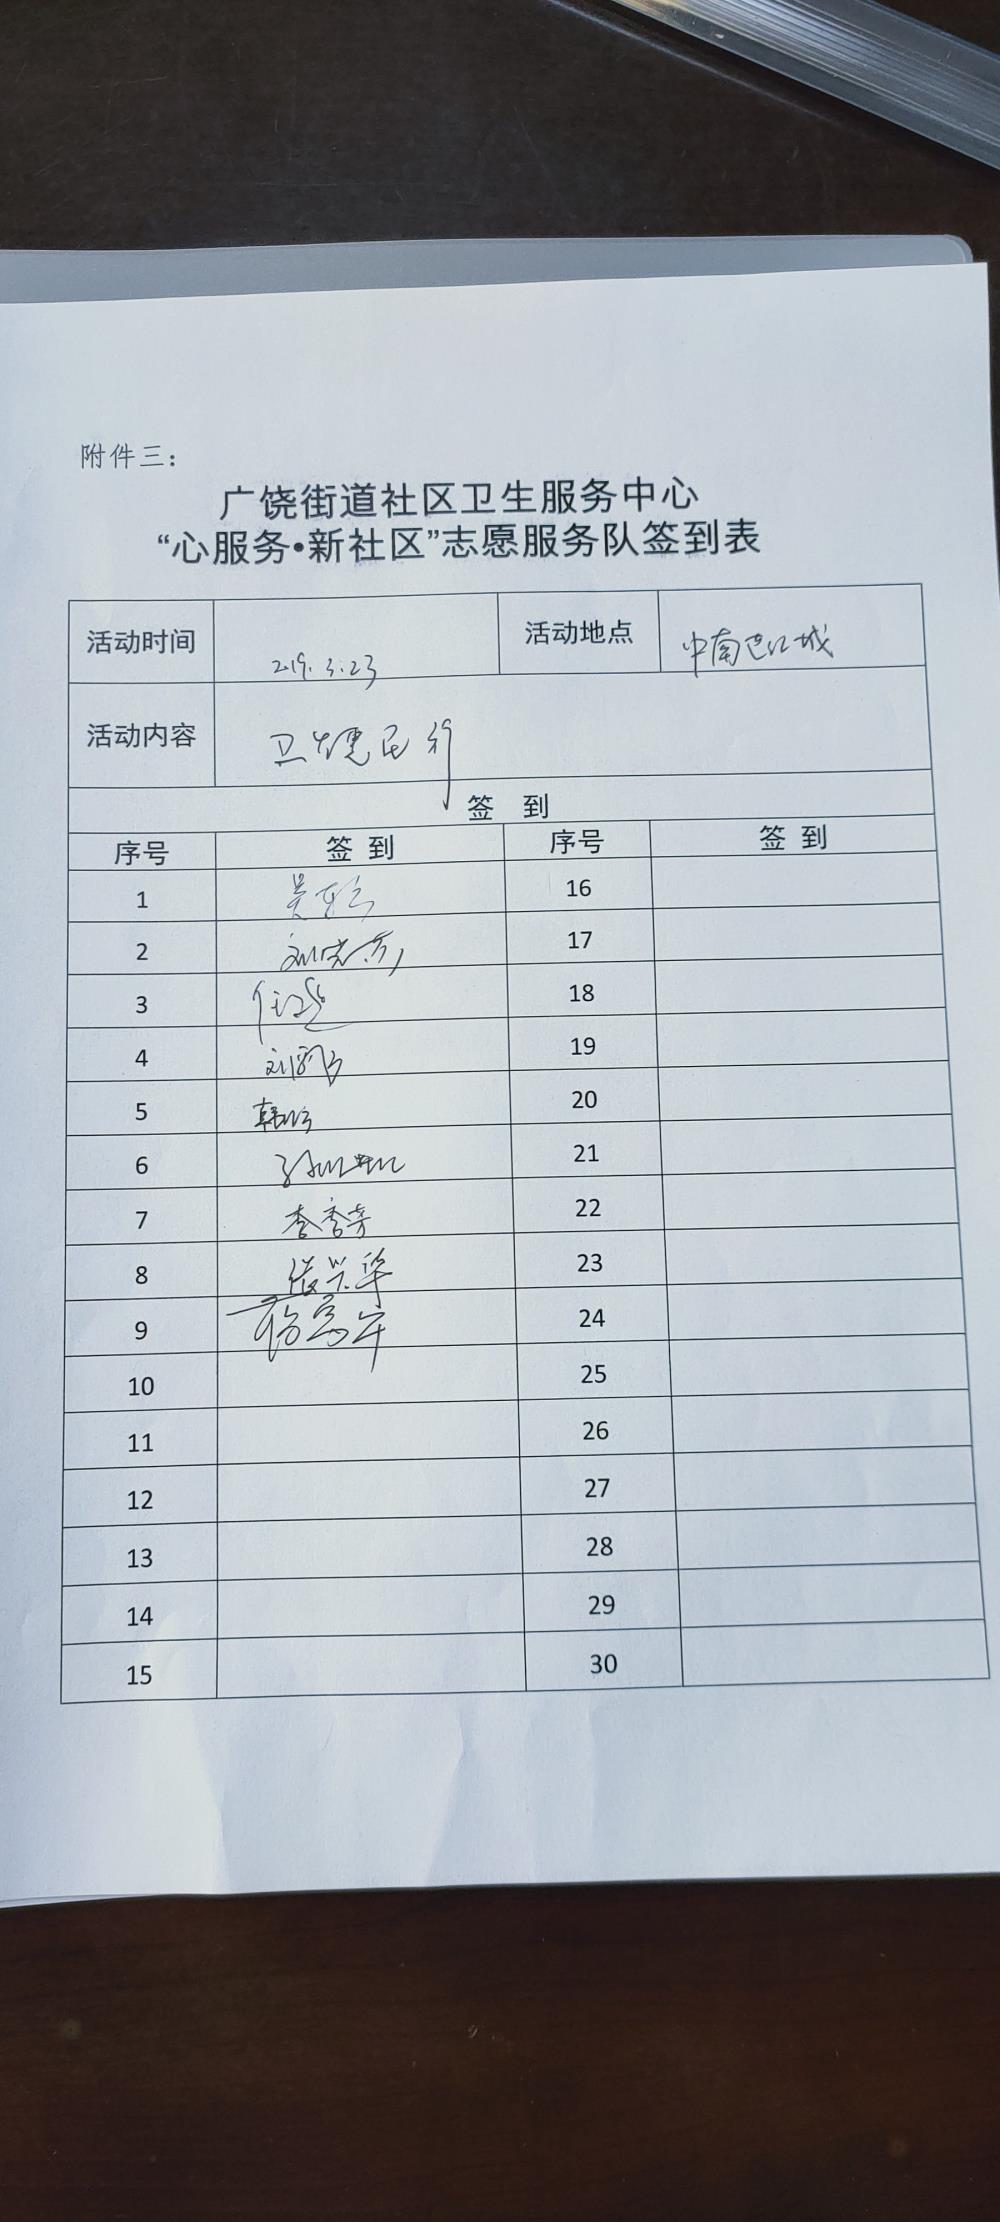 附件三：
广饶街道社区卫生服务中心
“心服务•新社区”志愿服务队签到表
活动时间 2019.3.23 活动地点 中南世纪城
活动内容 卫生惠民行
签 到
序号 签 到 序号 签 到
1 16
2 刘 17
3 任 18
4 刘 19
5 韩 20
6 21
7 李秀芳 22
8 张兴华 23
9 24
10 25
11 26
12 27
13 28
14 29
15 30